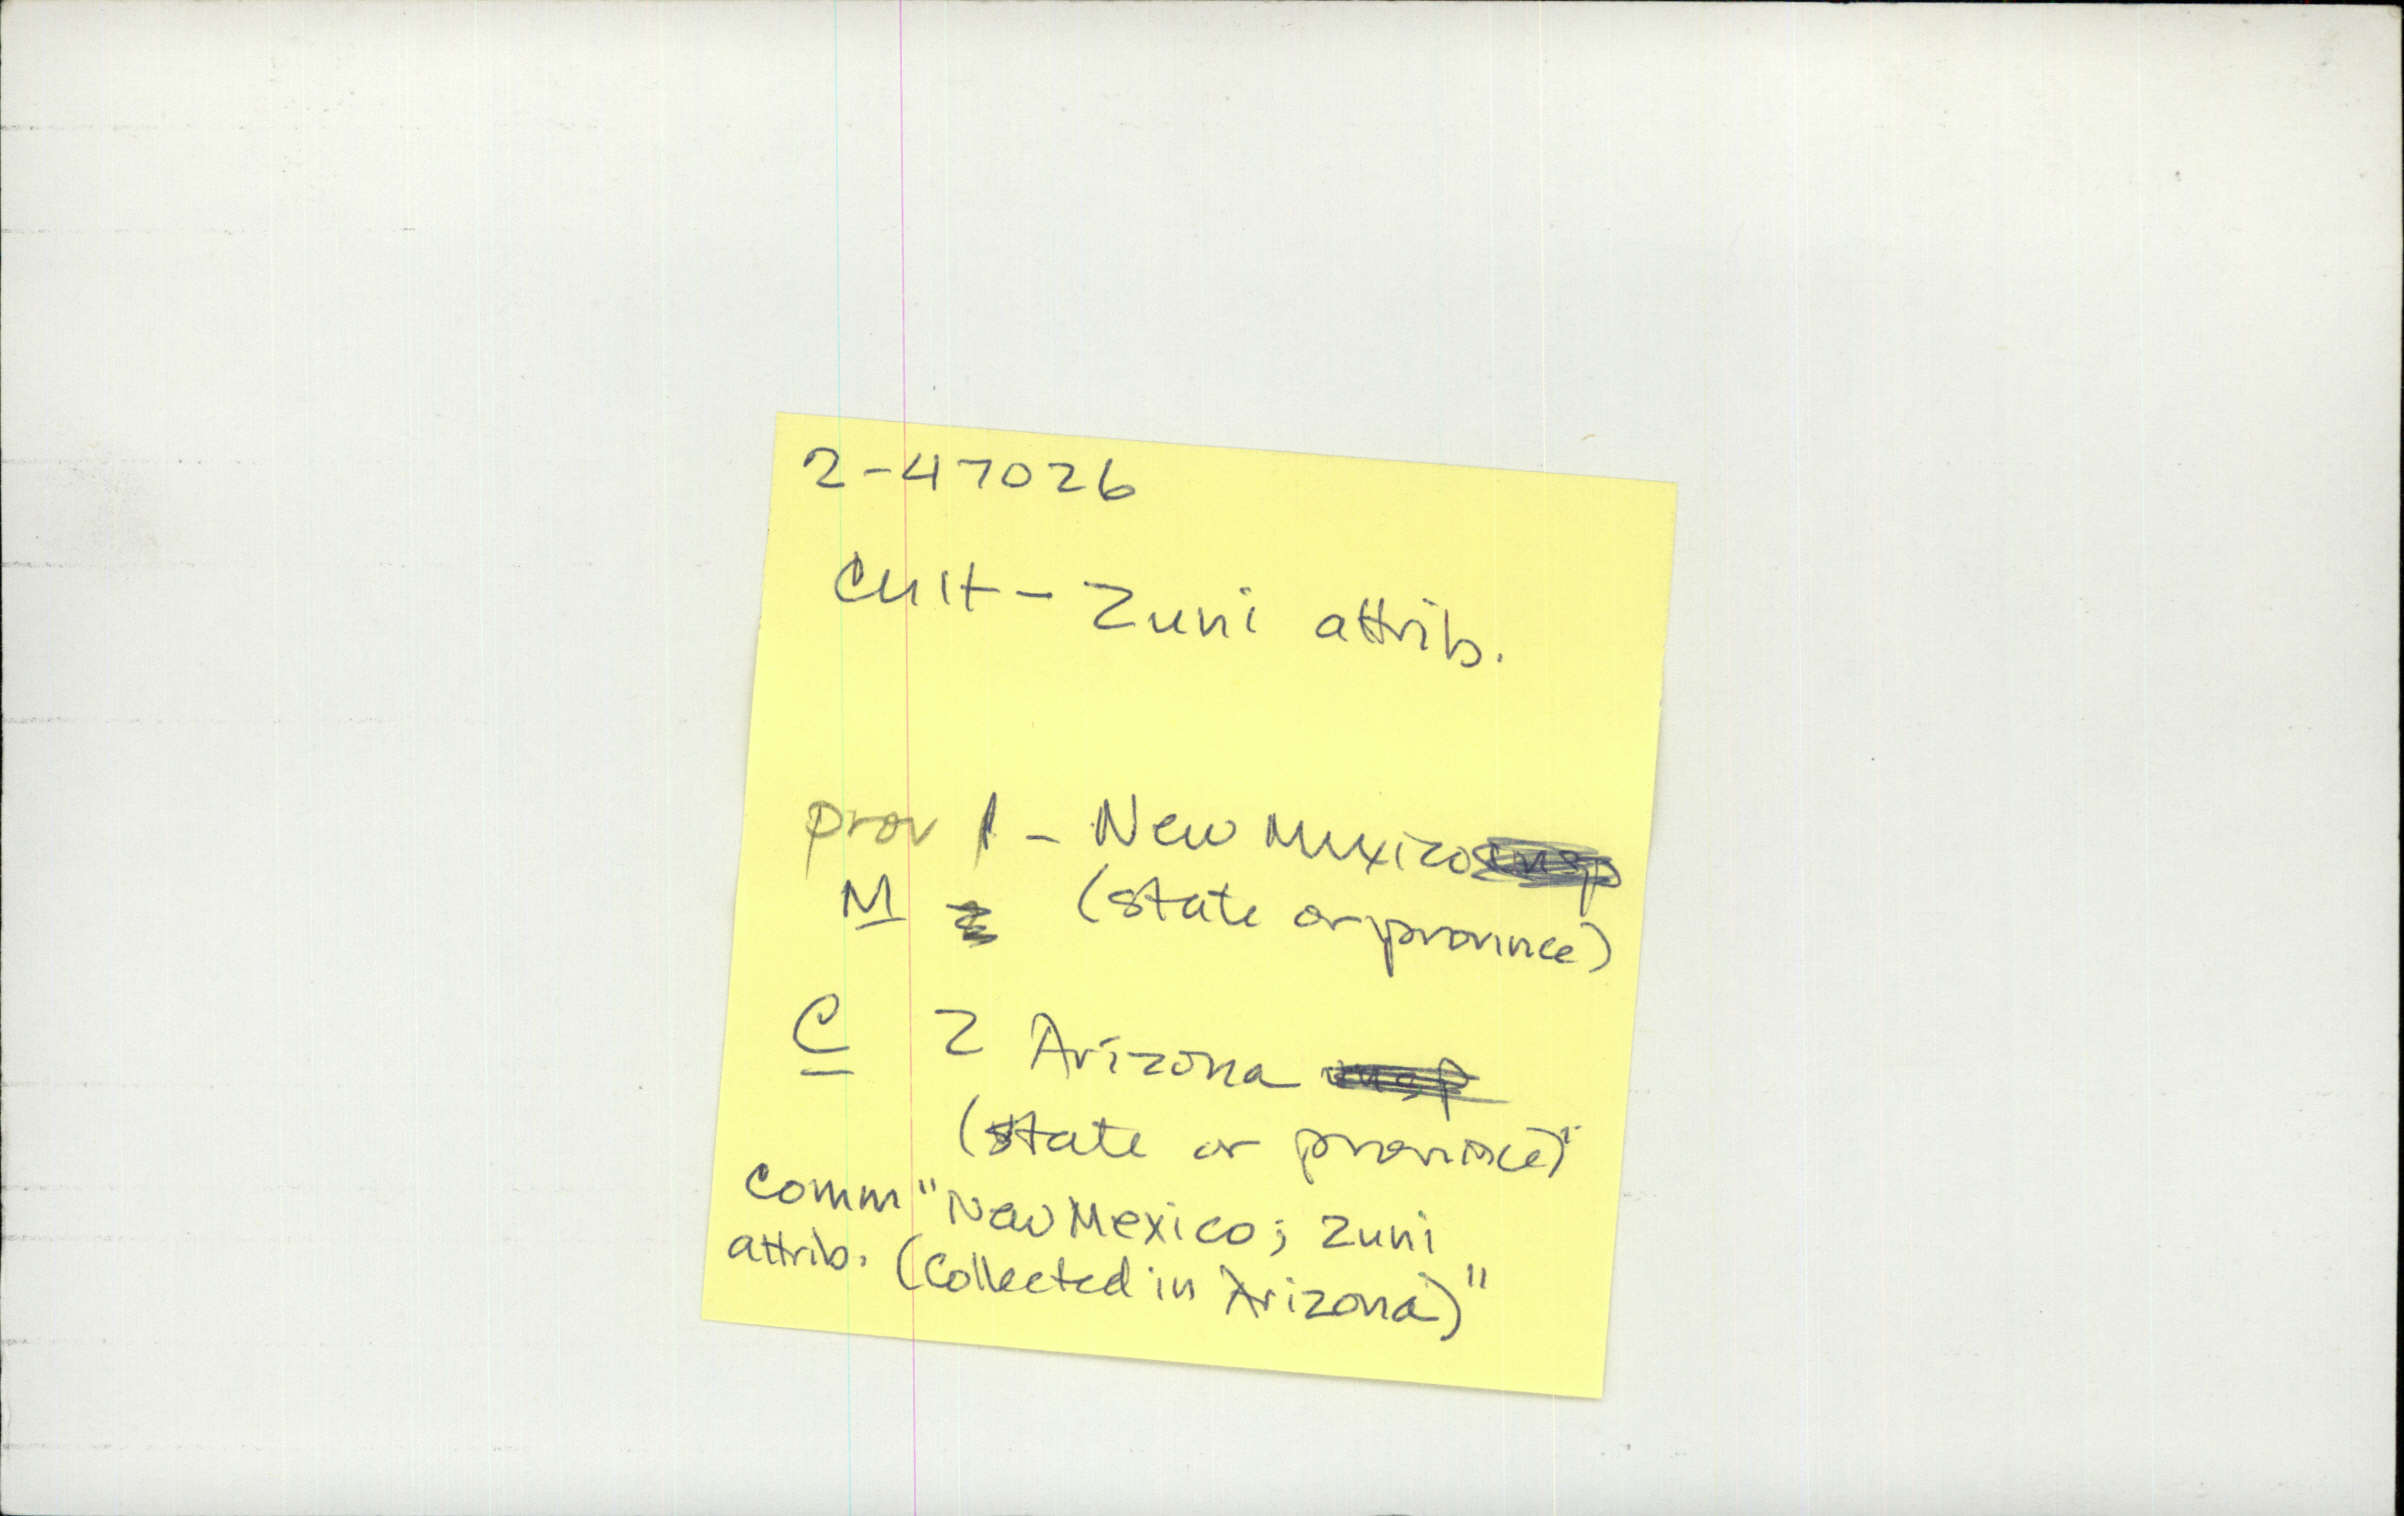 2-47026
Cult - Zuni attrib.
prov 1 - New Mexico
M (state or province)
C 2 Arizona
(state or province)
Comm "New Mexico; Zuni
attrib. (Collected in Arizona)"